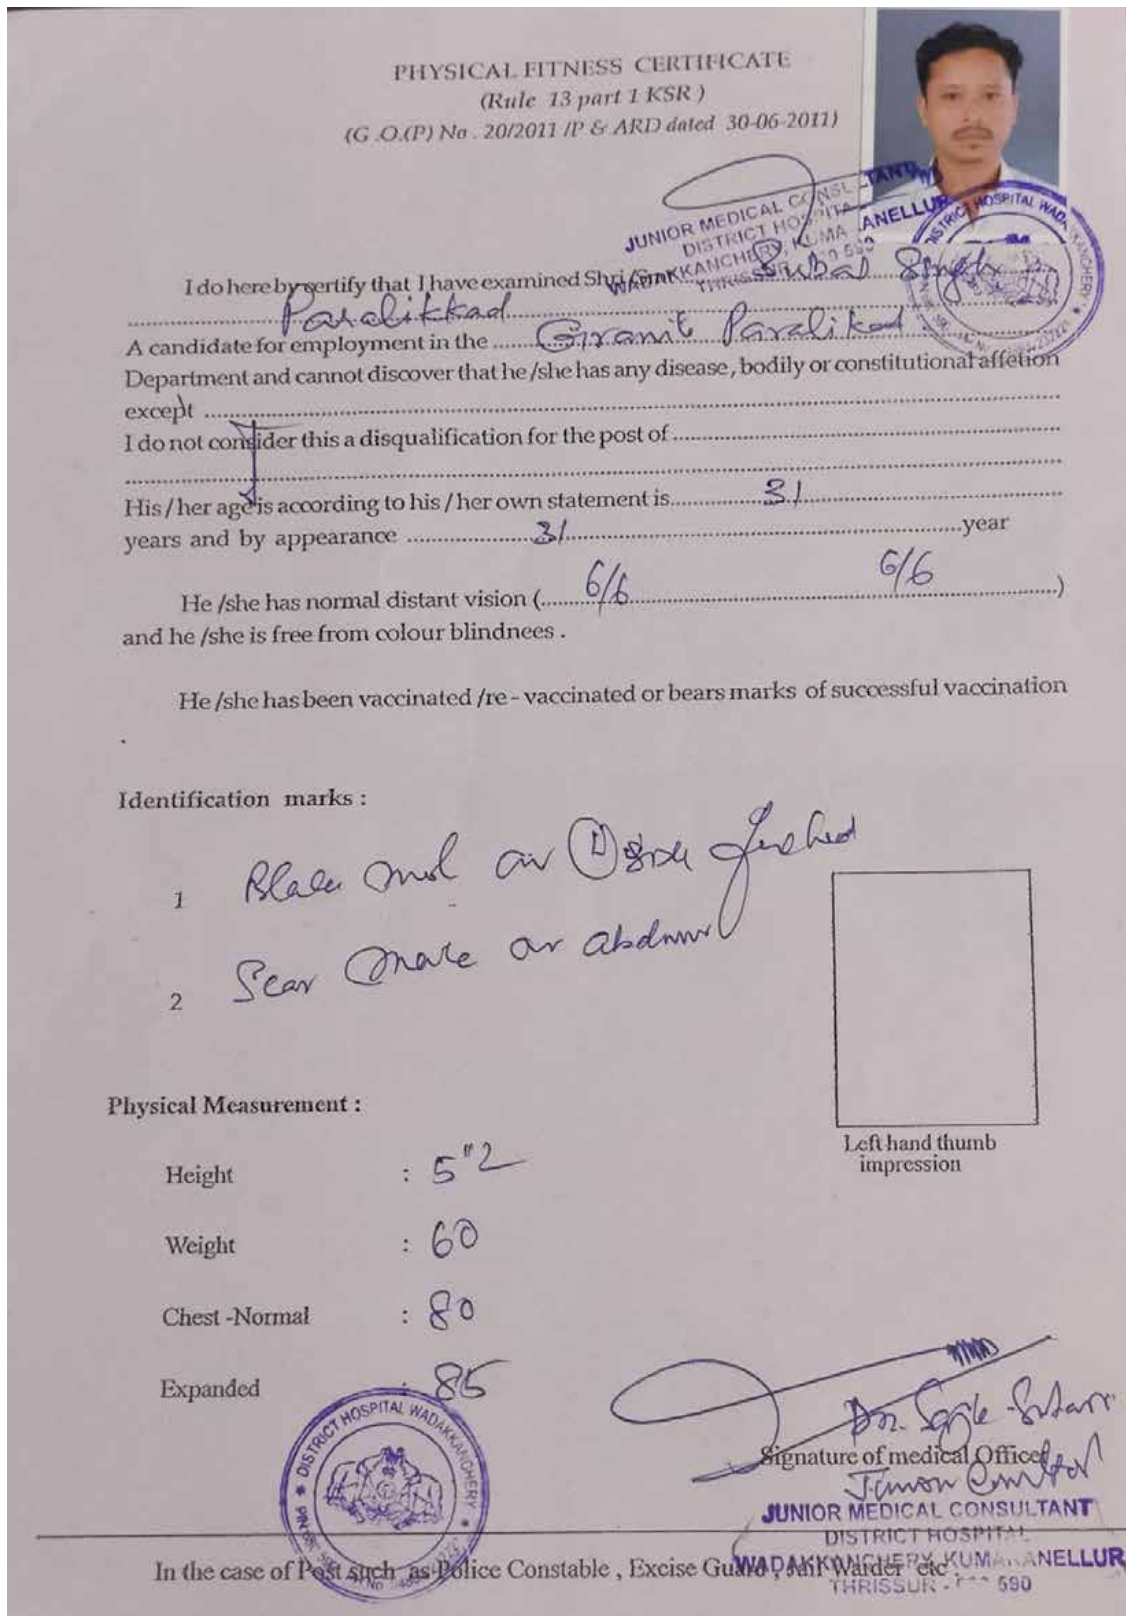 PHYSICAL FITNESS CERTIFICATE
(Rule 13 part 1 KSR )
(G .O.(P) No . 20/2011 /P & ARD dated 30-06-2011)
JUNIOR MEDICAL CONSULTANT
DISTRICT HOSPITAL
WADAKKANCHERY, KUMARANELLUR
THRISSUR 590
DISTRICT HOSPITAL WADAKKANCHERY
I do here by certify that I have examined Shri /Smt Subal Singh
Paralikkad
A candidate for employment in the Granit Paralikad
Department and cannot discover that he /she has any disease, bodily or constitutional affetion
except
I do not consider this a disqualification for the post of
His / her age is according to his / her own statement is 31
years and by appearance 31 year
He /she has normal distant vision ( 6/6 6/6 )
and he /she is free from colour blindnees .
He /she has been vaccinated /re - vaccinated or bears marks of successful vaccination
.
Identification marks :
1 Black mol on (L) side forehed
2 Scar mark on abdmn
Left hand thumb
impression
Physical Measurement :
Height : 5"2
Weight : 60
Chest -Normal : 80
Expanded : 85
DISTRICT HOSPITAL WADAKKANCHERY
Dr.
Signature of medical Officer
JUNIOR MEDICAL CONSULTANT
DISTRICT HOSPITAL
WADAKKANCHERY, KUMARANELLUR
THRISSUR - 590
In the case of Post such as Police Constable , Excise Guard , Jail Warder etc .